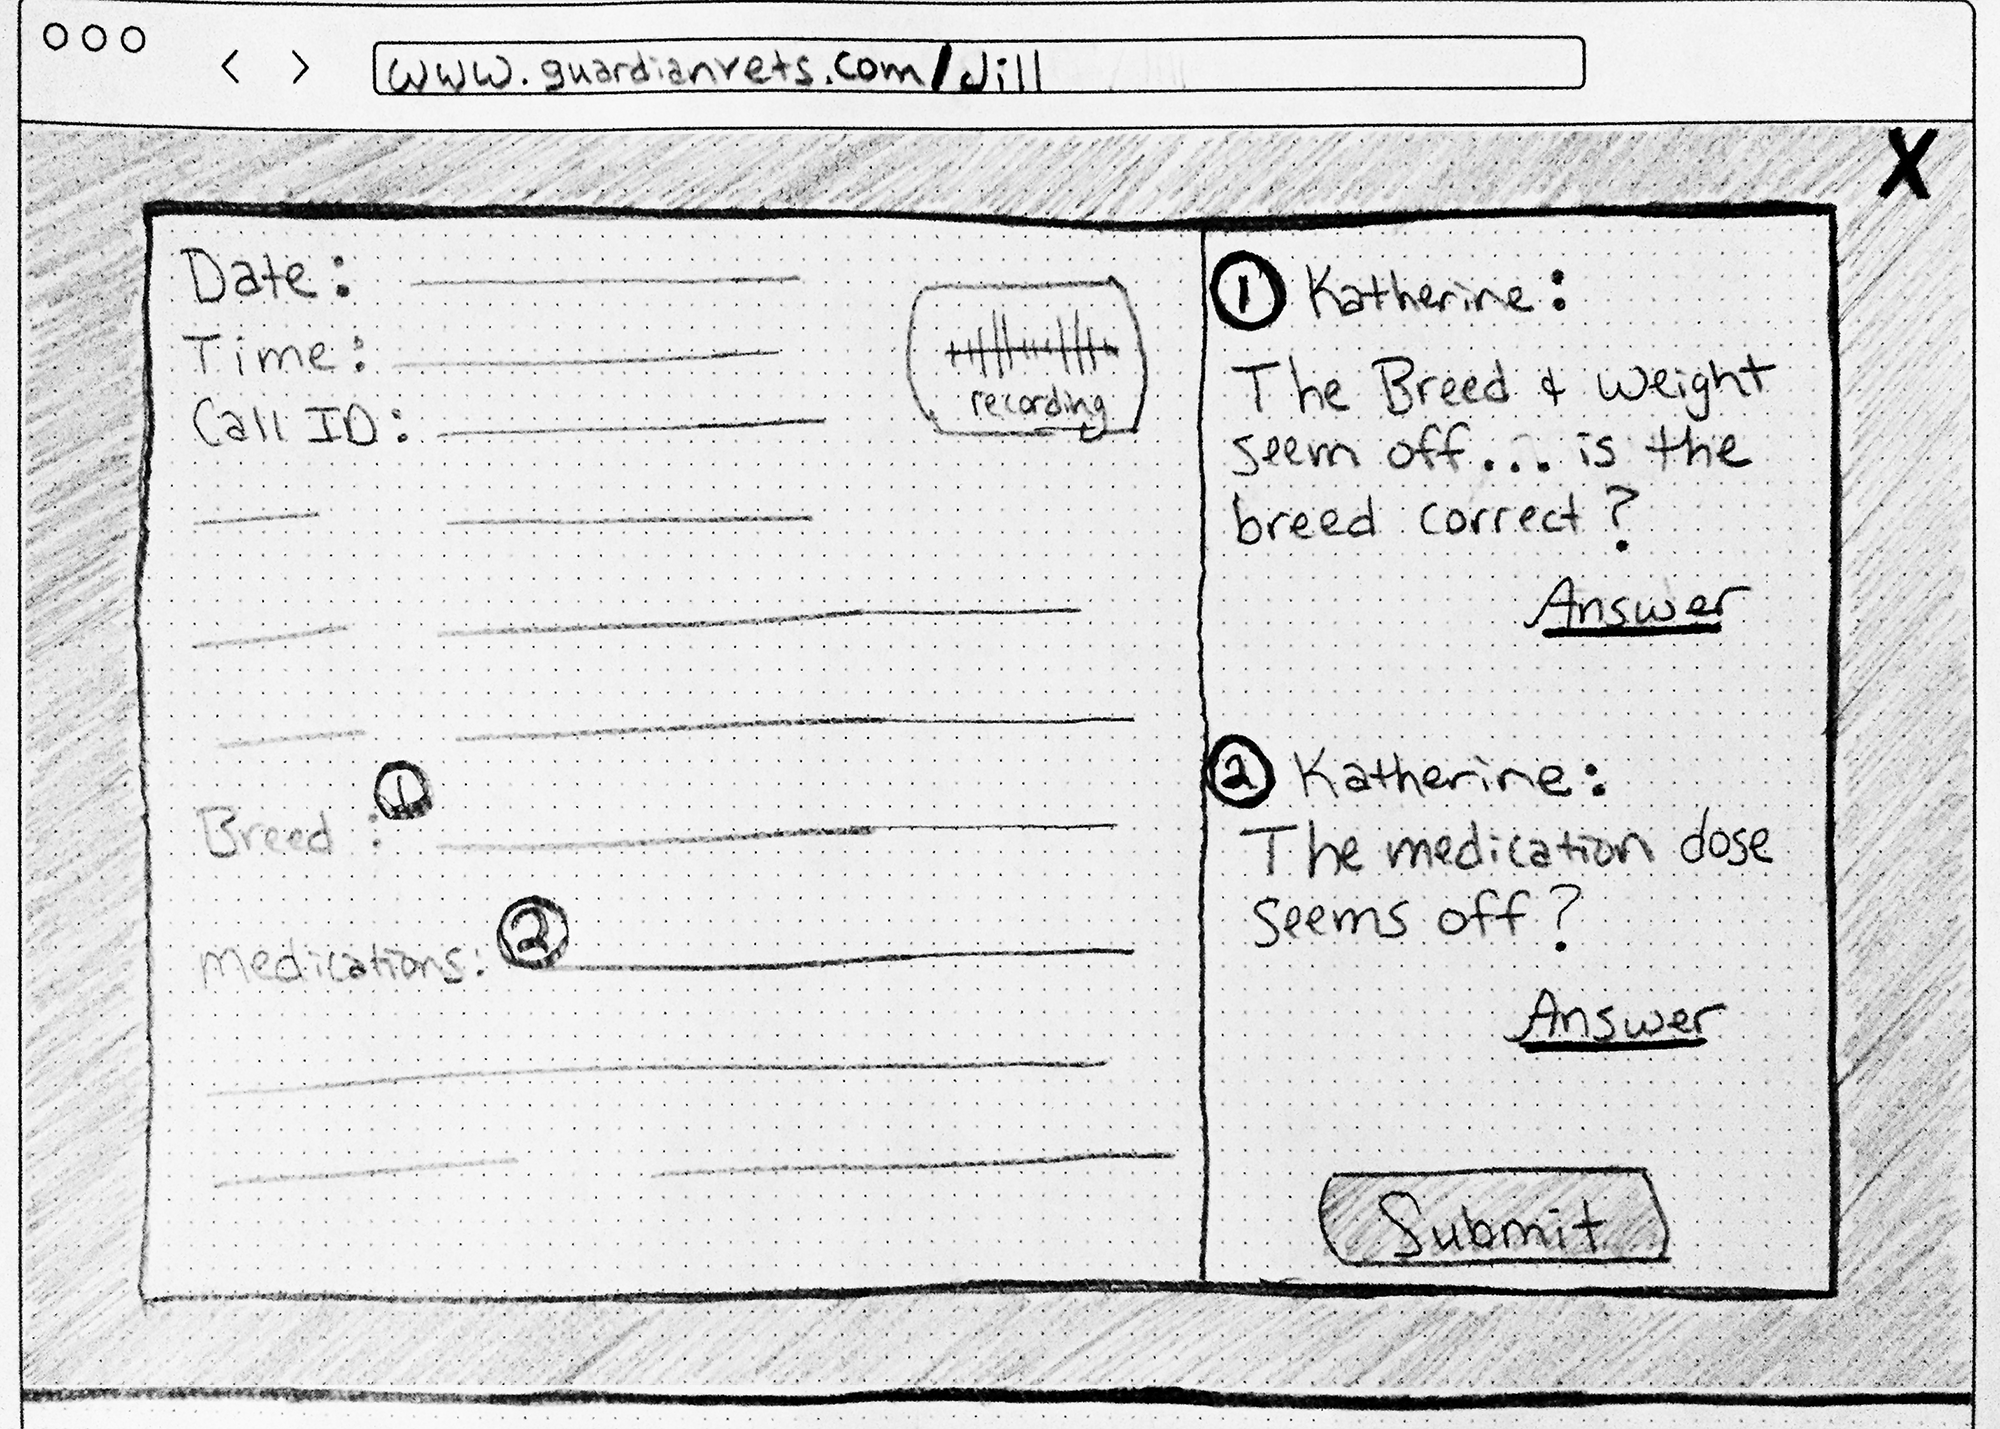 www.guardianvets.com/Jill
X
Date:
Time:
Call ID:
recording
Breed : 1
medications: 2
1 Katherine:
The Breed & weight
seem off... is the
breed correct?
Answer
2 Katherine:
The medication dose
seems off?
Answer
Submit